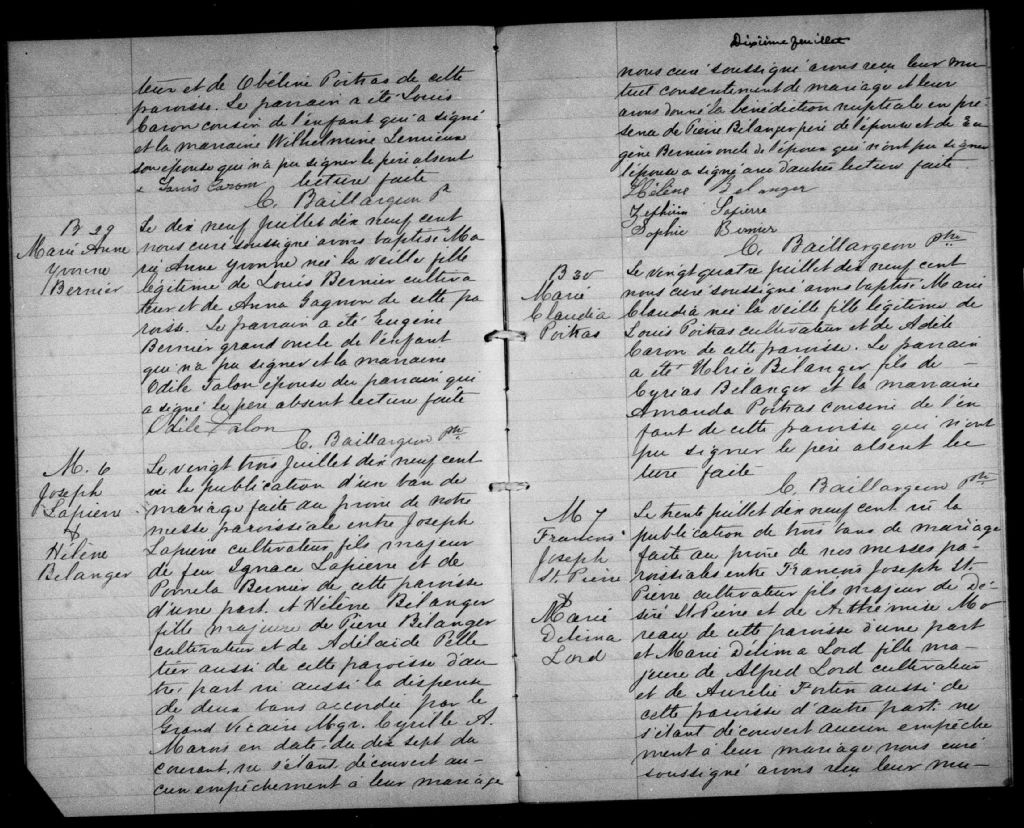 teur et de Obéline Poitras de cette
paroisse. Le parrain a été Louis
Caron cousin de l'enfant qui a signé
et la marraine Wilhelmine Lemieux
son épouse qui n'a pu signer le père absent
Louis Caron lecture faite
C. Baillargeon Pt
B 29
Marie Anne
Yvonne
Bernier
Le dix neuf Juillet dix neuf cent
nous curé soussigné avons baptisé Ma
rie Anne Yvonne née la veille fille
légitime de Louis Bernier cultiva
teur et de Anna Gagnon de cette pa
roisse. Le parrain a été Eugène
Bernier grand oncle de l'enfant
qui n'a pu signer et la marraine
Odile Talon épouse du parrain qui
a signé le père absent lecture faite
Odile Talon
C. Baillargeon Ptre
M. 6
Joseph
Lapierre
&
Hélène
Belanger
Le vingt trois Juillet dix neuf cent
vu la publication d'un ban de
mariage faite au prône de notre
messe paroissiale entre Joseph
Lapierre cultivateur fils majeur
de feu Ignace Lapierre et de
Pomela Bernier de cette paroisse
d'une part et Hélène Bélanger
fille majeure de Pierre Bélanger
cultivateur et de Adélaide Pelle
tier aussi de cette paroisse d'au
tre part vu aussi la dispense
de deux bans accordée par le
Grand Vicaire Mgr. Cyrille A.
Marois en date du dix sept du
courant, ne s'étant découvert au-
cun empêchement à leur mariage
Dixième feuillet
nous curé soussigné avons reçu leur mu-
tuel consentement de mariage et leur
avons donné la bénédiction nuptiale en pré-
sence de Pierre Bélanger père de l'épouse et de Eu
gène Bernier oncle de l'époux qui n'ont pu signer
l'épouse a signé avec d'autres lecture faite.
Hélène Belanger
Zephirin Lapierre
Sophie Bernier
C. Baillargeon Ptre
B 30
Marie
Claudia
Poitras
Le vingt quatre juillet dix neuf cent
nous curé soussigné avons baptisé Marie
Claudia née la veille fille légitime de
Louis Poitras cultivateur et de Adèle
Caron de cette paroisse. Le parrain
a été Ulric Bélanger fils de
Cyrias Bélanger et la marraine
Amanda Poitras cousine de l'en
fant de cette paroisse qui n'ont
pu signer le père absent lec
ture faite
C. Baillargeon Ptre
M 7
Francois
Joseph
St. Pierre
&
Marie
Délima
Lord
Le trente juillet dix neuf cent vu la
publication de trois bans de mariage
faite au prône de nos messes pa-
roissiales entre Francois Joseph St.
Pierre cultivateur fils majeur de Dé-
siré St Pierre et de Arthémise Mo
reau de cette paroisse d'une part
et Marie Délima Lord fille ma-
jeure de Alfred Lord cultivateur
et de Aurélie Fortin aussi de
cette paroisse d'autre part: ne
s'étant découvert aucun empêche
ment à leur mariage nous curé
soussigné avons reçu leur mu-